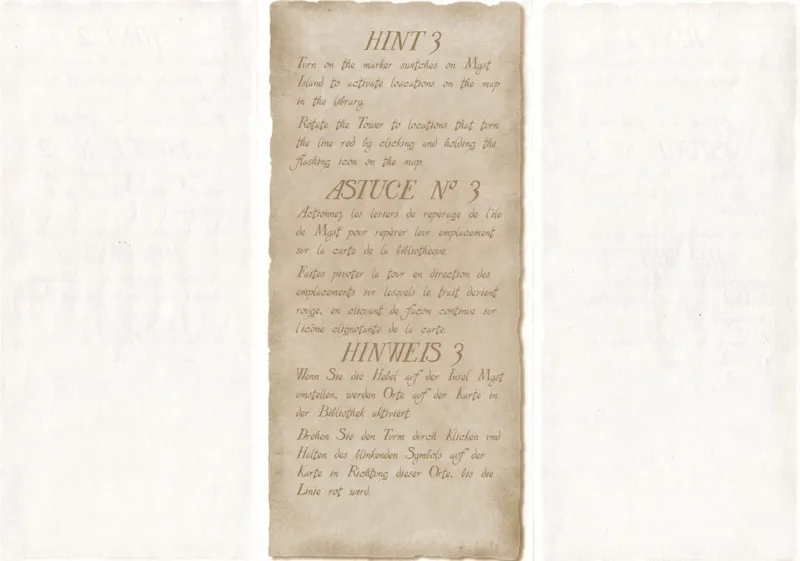 HINT 3
Turn on the marker switches on Myst
Island to activate loacations on the map
in the library.
Rotate the Tower to locations that turn
the line red by clicking and holding the
flashing icon on the map.
ASTUCE N° 3
Actionnez les leviers de repérage de l'île
de Myst pour repérer leur emplacement
sur la carte de la bibliothèque.
Faites pivoter la tour en direction des
emplacements sur lesquels le trait devient
rouge, en cliquant de façon continue sur
l'icône clignotante de la carte.
HINWEIS 3
Wenn Sie die Hebel auf der Insel Myst
umstellen, werden Orte auf der Karte in
der Bibliothek aktiviert.
Drehen Sie den Turm durch Klicken und
Halten des blinkenden Symbols auf der
Karte in Richtung dieser Orte, bis die
Linie rot wird.